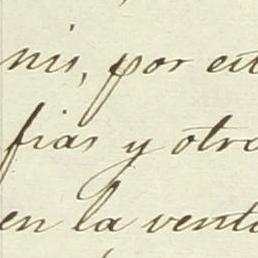 nis, por est
fias y otro
en la vent